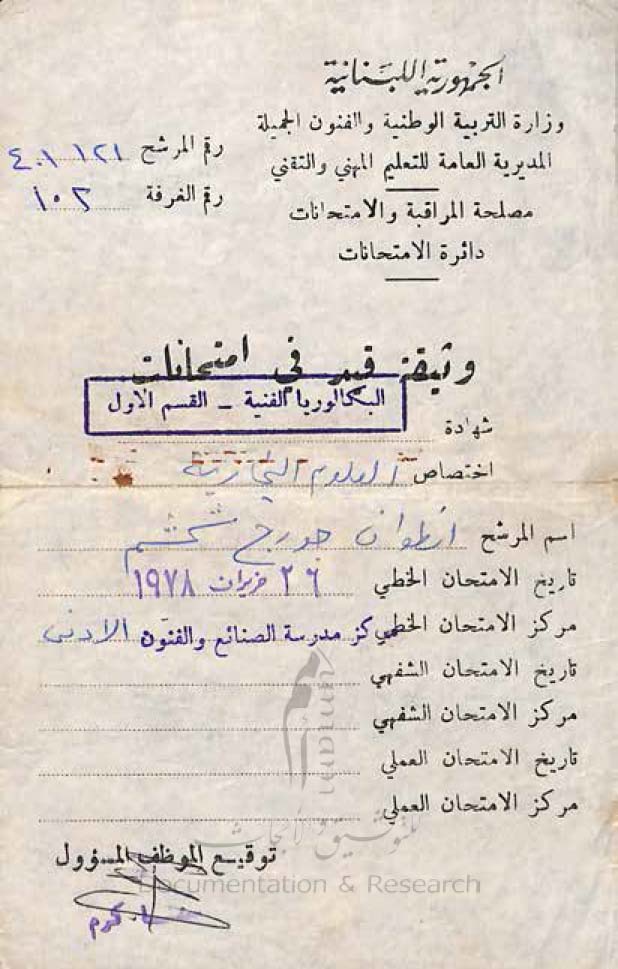 الجمهورية اللبنانية
وزارة التربية الوطنية والفنون الجميلة
المديرية العامة للتعليم المهني والتقني
مصلحة المراقبة والامتحانات
دائرة الامتحانات
رقم المرشح ٤٠١١٢١
رقم الغرفة ١٠٢
وثيقة قيد في امتحانات
البكالوريا الفنية - القسم الاول
شهادة
اختصاص العلوم التجارية
اسم المرشح انطوان جورج
تاريخ الامتحان الخطي ٢٦ حزيران ١٩٧٨
مركز الامتحان الخطي مركز مدرسة الصنائع والفنون الادنى
تاريخ الامتحان الشفهي
مركز الامتحان الشفهي
تاريخ الامتحان العملي
مركز الامتحان العملي
للتوثيق والأبحاث
توقيع الموظف المسؤول
Documentation & Research
كرم